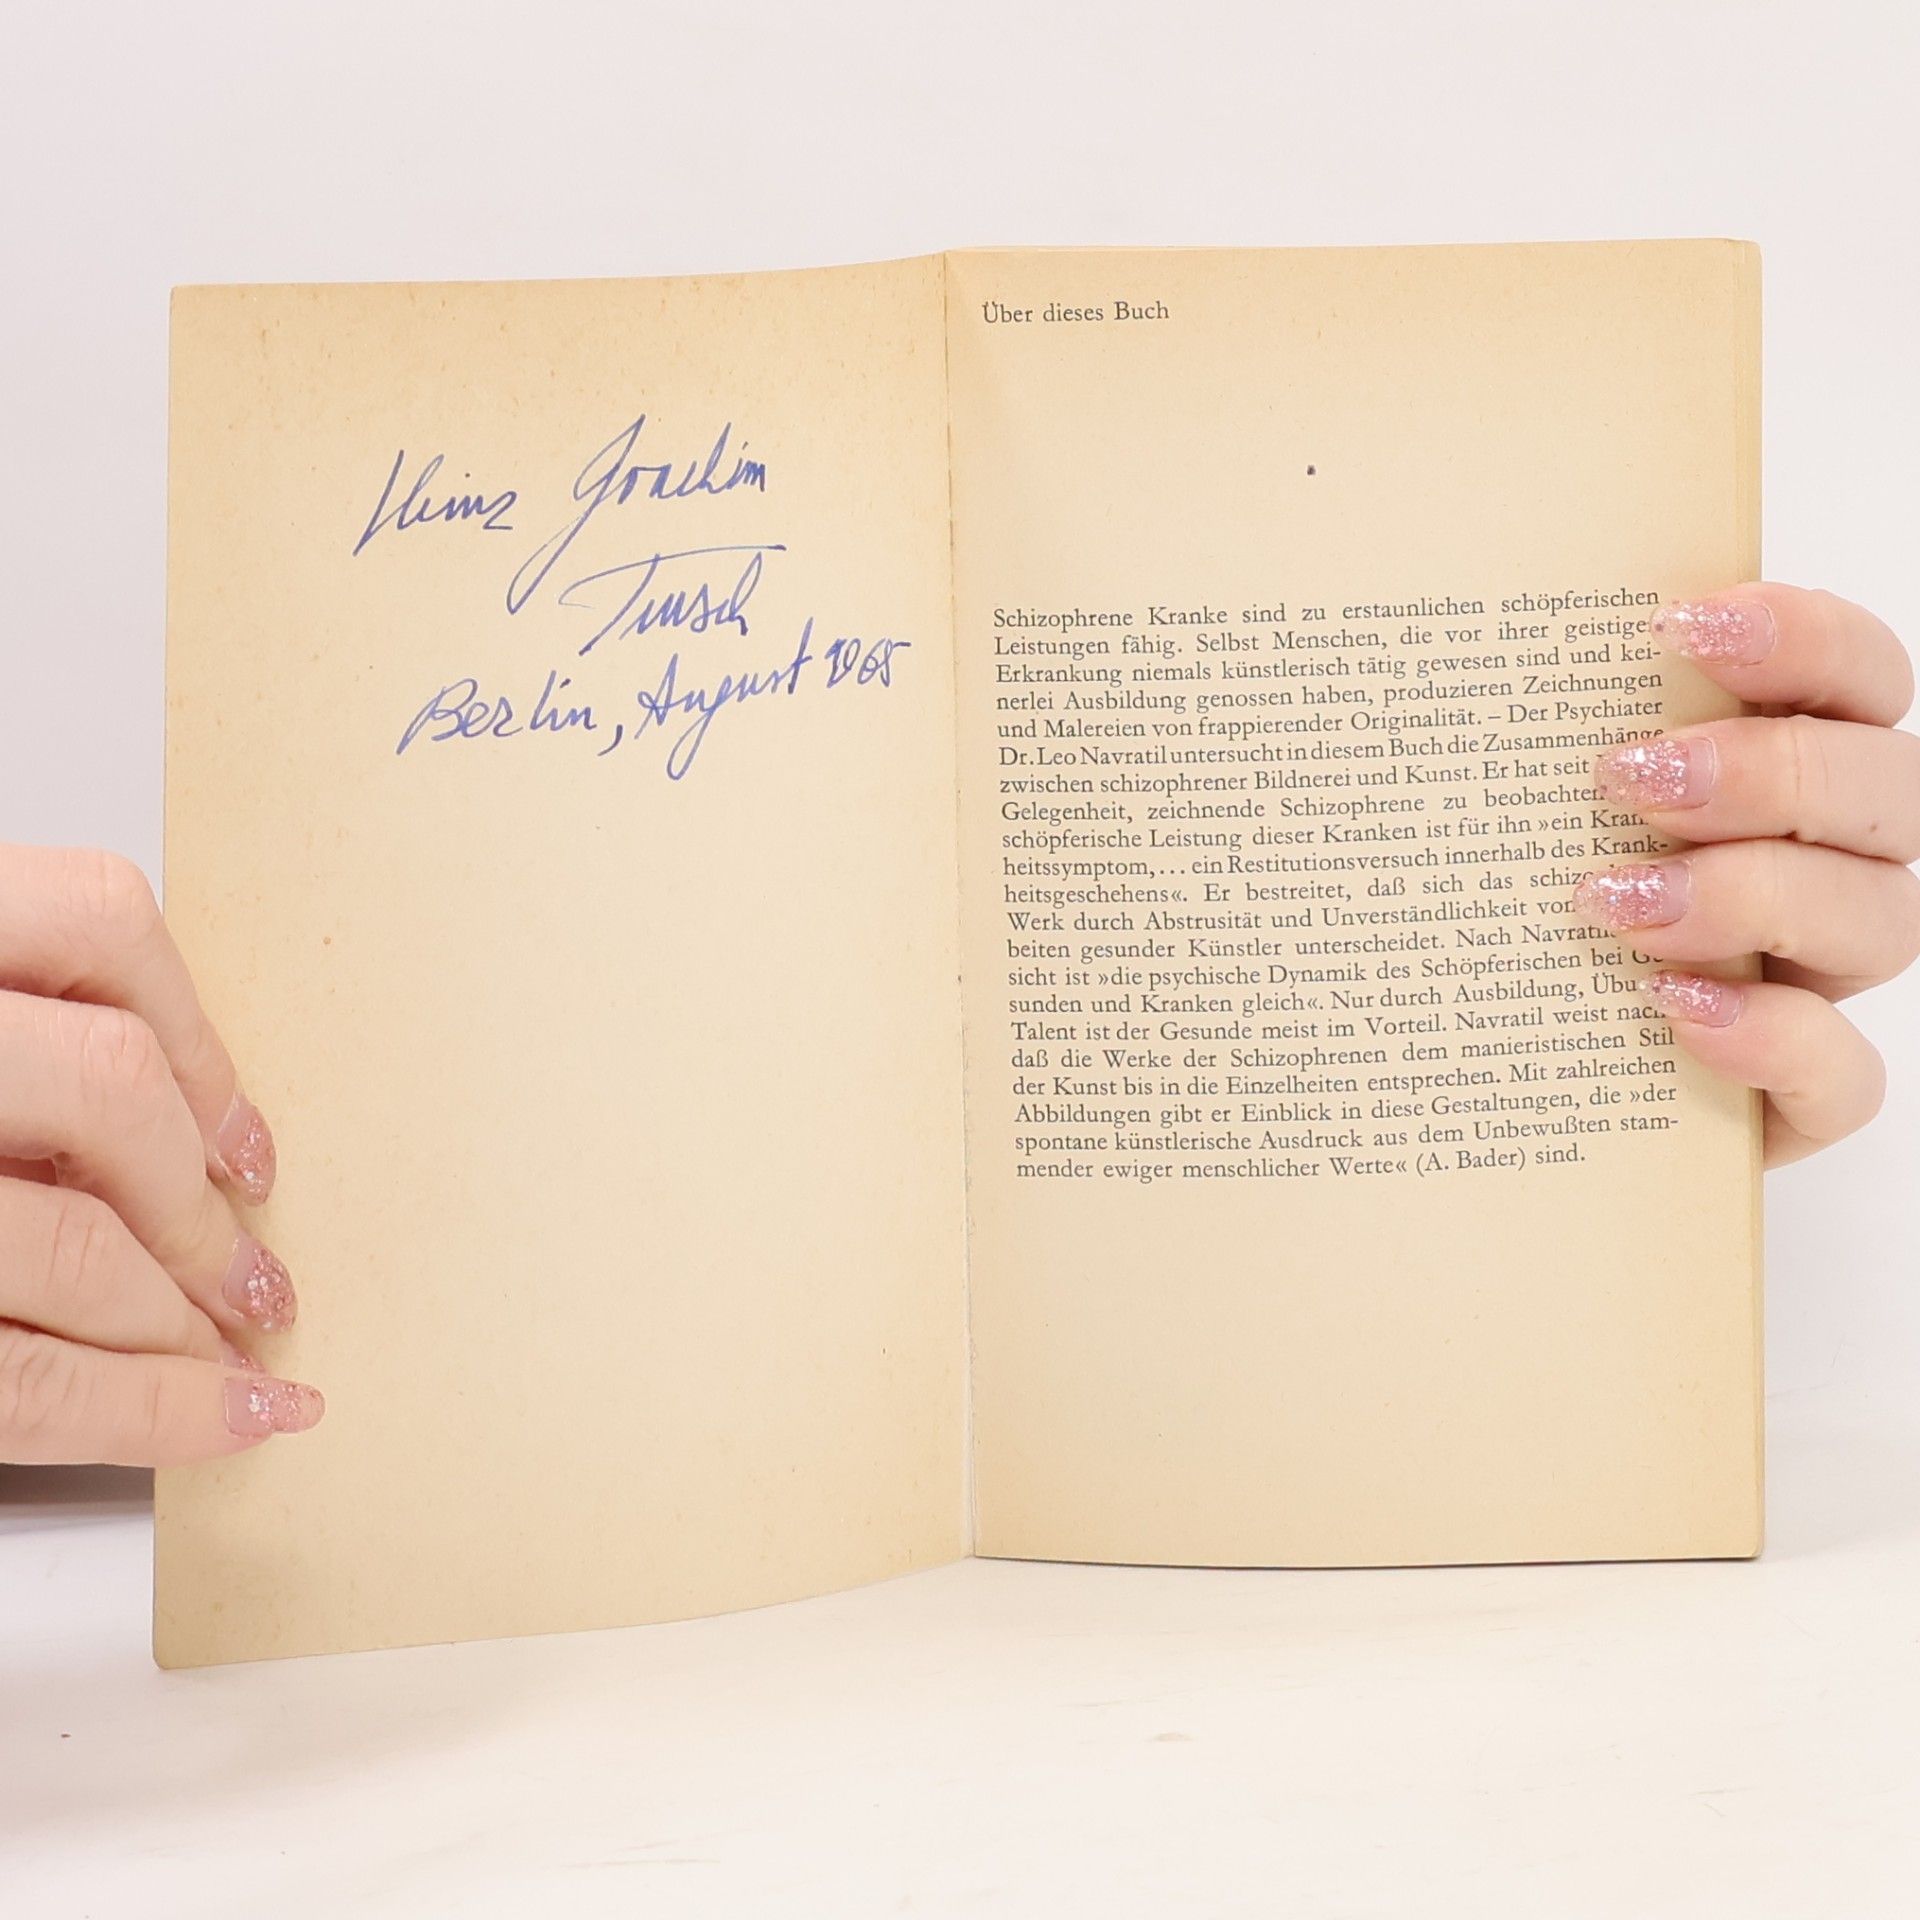 Heinz Joachim
Berlin, August 1965
Über dieses Buch
Schizophrene Kranke sind zu erstaunlichen schöpferischen
Leistungen fähig. Selbst Menschen, die vor ihrer geistigen
Erkrankung niemals künstlerisch tätig gewesen sind und kei-
nerlei Ausbildung genossen haben, produzieren Zeichnungen
und Malereien von frappierender Originalität. – Der Psychiater
Dr. Leo Navratil untersucht in diesem Buch die Zusammenhänge
zwischen schizophrener Bildnerei und Kunst. Er hat seit
Gelegenheit, zeichnende Schizophrene zu beobachten
schöpferische Leistung dieser Kranken ist für ihn »ein Krank-
heitssymptom, ... ein Restitutionsversuch innerhalb des Krank-
heitsgeschehens«. Er bestreitet, daß sich das
Werk durch Abstrusität und Unverständlichkeit von
beiten gesunder Künstler unterscheidet. Nach
sicht ist »die psychische Dynamik des Schöpferischen bei Ge-
sunden und Kranken gleich«. Nur durch Ausbildung,
Talent ist der Gesunde meist im Vorteil. Navratil weist nach,
daß die Werke der Schizophrenen dem manieristischen Stil
der Kunst bis in die Einzelheiten entsprechen. Mit zahlreichen
Abbildungen gibt er Einblick in diese Gestaltungen, die »der
spontane künstlerische Ausdruck aus dem Unbewußten stam-
mender ewiger menschlicher Werte« (A. Bader) sind.